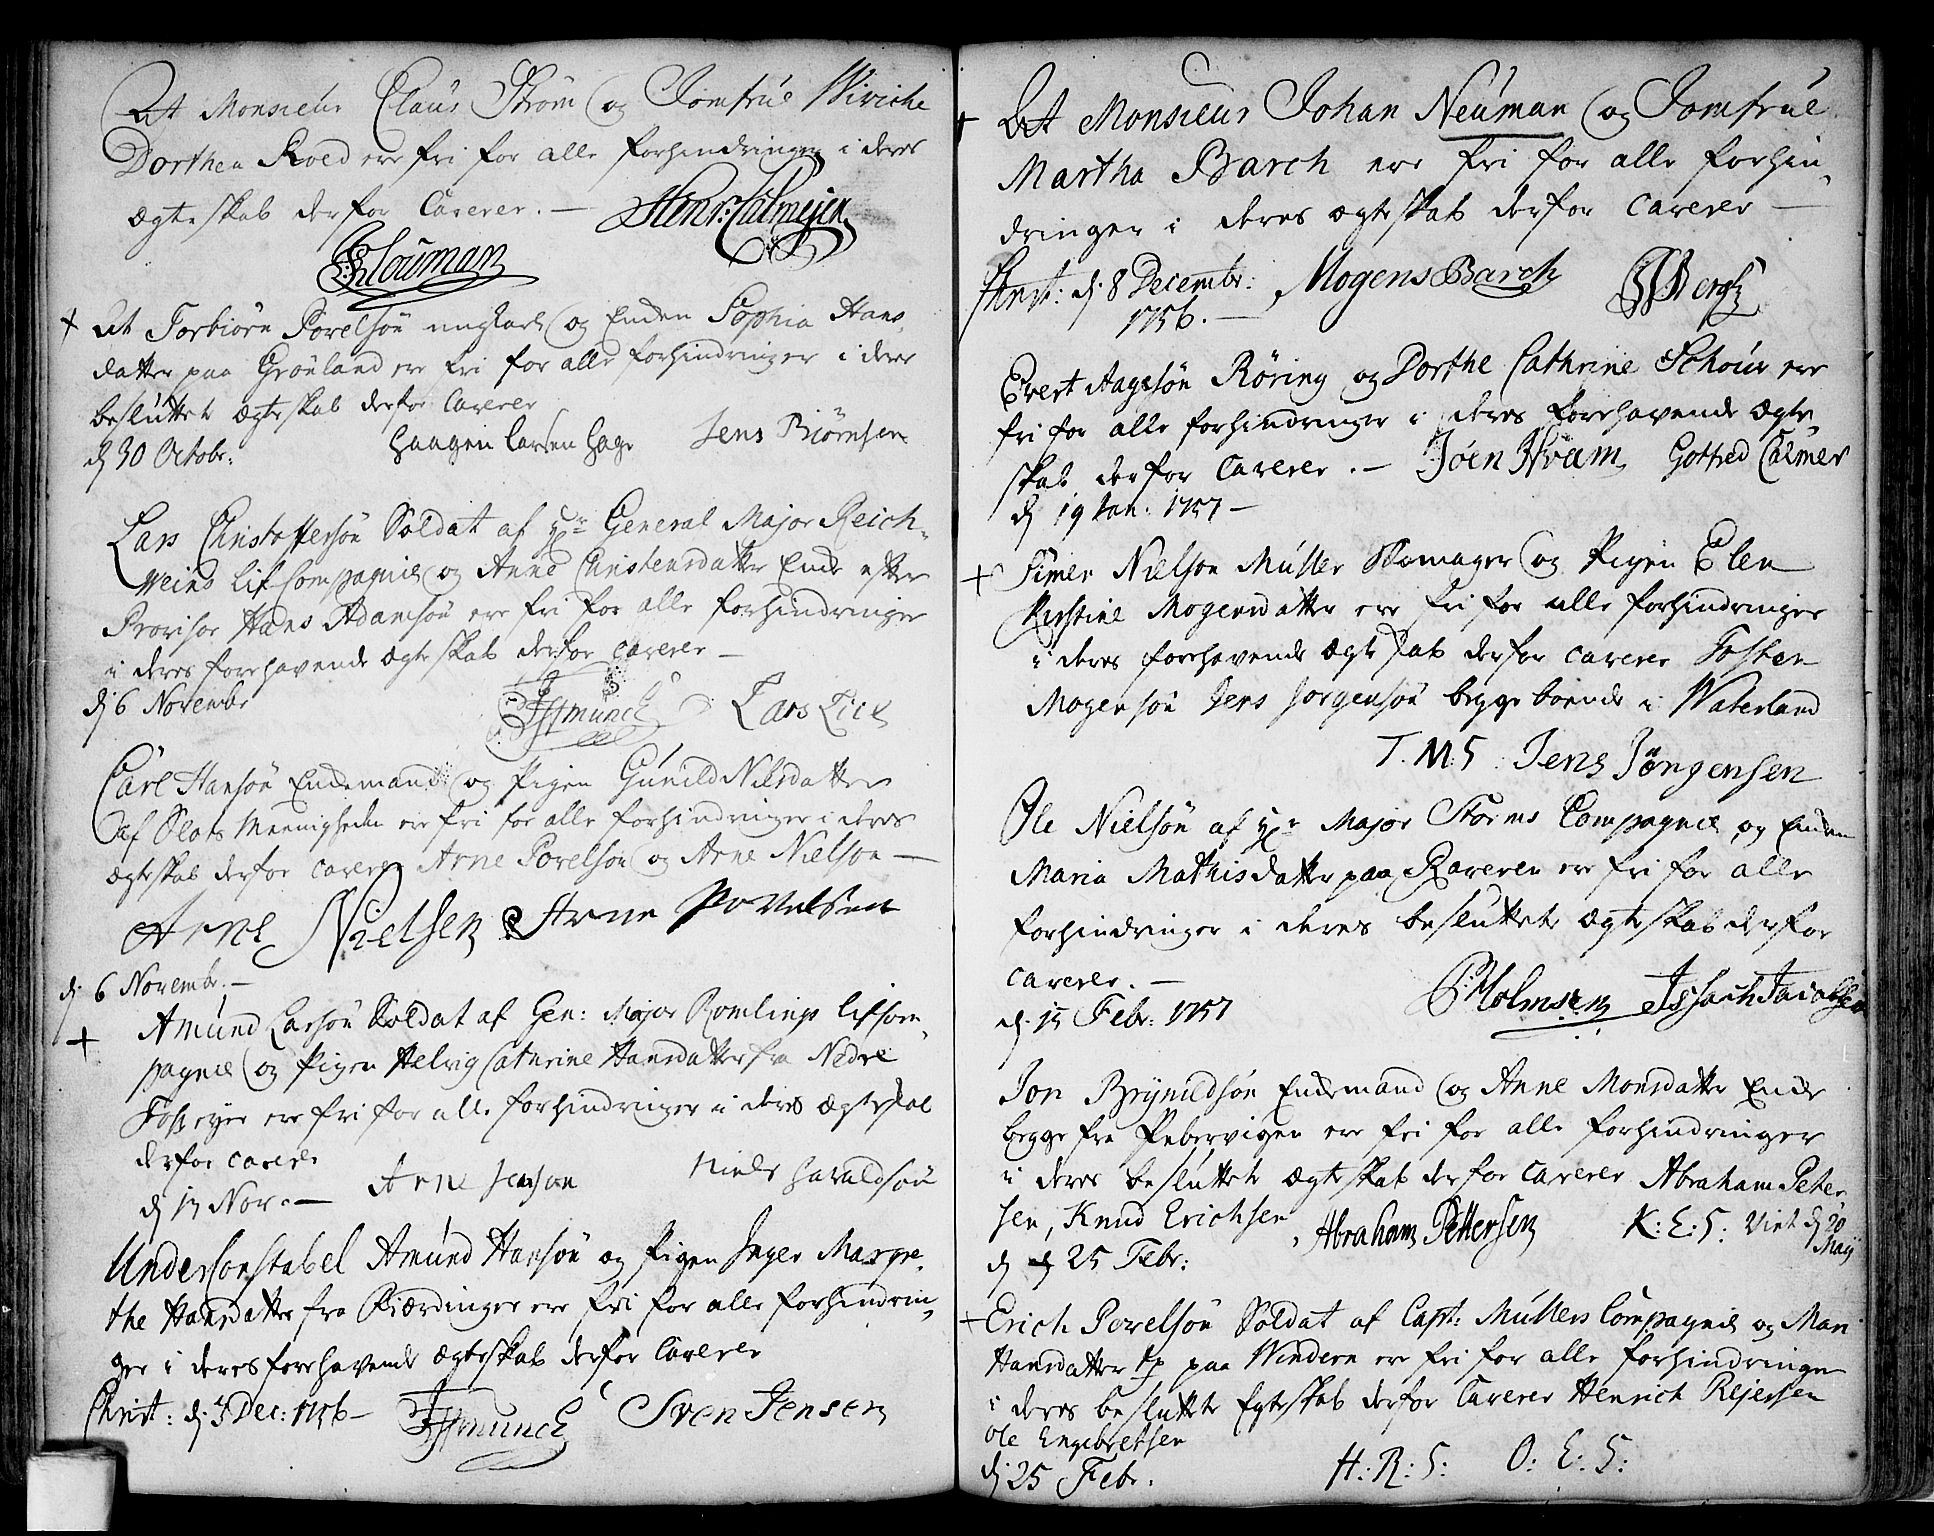 At Monsieur Claus Strøm og Jomfrue Wiviche
Dorthea Roed ere fri for alle forhindringer i deres
ægteskab derfor Caverer. —
Henr: Calmejer
Klouman
+ At Torbiörn Povelsön ungkarl og Enken Sophia Hans-
datter paa Grönland ere fri for alle forhindringer i deres
besluttet ægteskab derfor Caverer
d 30 Octobr: Haagen Larsen Hage Jens Biörnsen
Lars Christoffersön Soldat af Hr General Major Reich-
weins lifCompagnie og Anne Christensdatter Enke efter
Provisor Hans Adamsön ere fri for alle forhindringer
i deres forehavende ægteskab derfor Caverer —
d: 6 Novembr Munch Lars
Carl Hansön Enkemand og Pigen Gunild Nilsdatter
af Slots Meenigheden ere fri for alle forhindringer i deres
ægteskab derfor caverer Arne Povelsön og Arne Nielson —
Arne Nielsen Arne Povelsen
d: 6 Novembr. —
+ Amund Larsön Soldat af Gen: Major Romlings lifCom-
pagnie og Pigen Helvig Cathrine Hansdatter fra Nedre
Foss ere fri for alle forhindringer i deres ægteskab
derfor caverer
d 17 Nov. — Arne Jensen Niels Haraldsön
UnderConstabel Amund Hansön og Pigen Inger Margre-
the Hansdatter fra Biærdinger ere fri for alle forhindrin-
ger i deres forehavende ægteskab derfor Caverer
Christ: d: 3 Dec: 1756 — Munch Sven Jensen
+ At Monsieur Johan Neuman og Jomfrue
Martha Barch ere fri for alle forhin-
dringer i deres ægteskab derfor caverer —
Christ: d: 8 Decembr: Mogens Barch Bergh
1756. —
Evert Aagesön Röring og Dorthe Cathrine Schoiw ere
fri for alle forhindringer i deres forehavende ægte-
skab derfor Caverer. — Joen Hvam Gotfred Calmer
d 19 Jan. 1757 —
+ Simen Nielson Müller Skomager og Pigen Elen
Kirstine Mogensdatter ere fri for alle forhindringer
i deres forehavende ægteskab derfor caverer Tosten
Mogensön Jens Jorgensön begge boende i Waterland
T. M. S Jens Jörgensen
Ole Nielsön af Hr Major Storms Compagnie og Enken
Maria Mathisdatter paa ere fri for alle
forhindringer i deres besluttete ægteskab derfor
caverer. —
Holmsen Issach Jacobsen
d. 15 Febr: 1757
Jon Brynildsön Enkemand og Anne Monsdatter Enke
begge fra Pebervigen ere fri for alle forhindringer
i deres besluttete ægteskab derfor Caverer Abraham Peter-
sen, Knud Erichsen, Abraham Pettersen K: E: S: Viet d 20
Maij
d 25 Febr:
+ Erich Povelsön Soldat af Capt: Müllers Compagnie og Mari
Hansdatter paa Windern ere fri for alle forhindringer
i deres besluttete Egteskab derfor Caverer Henrich Rejersen
Ole Engebretsen
d: 25 Febr. H: R: S: O: E: S: